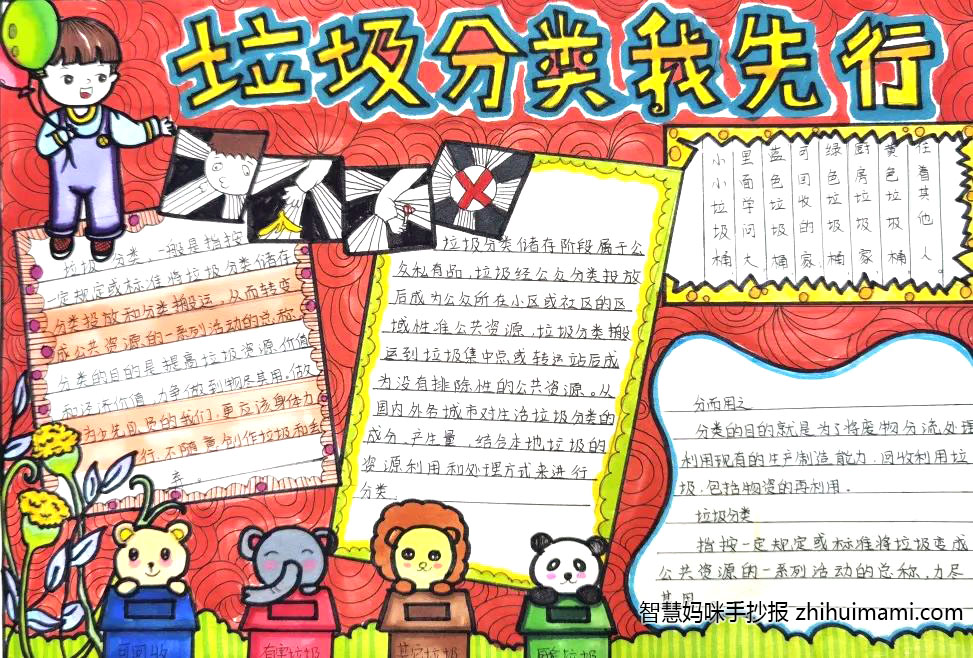 垃圾分类我先行
垃圾分类，一般是指按
一定规定或标准将垃圾分类储存
分类投放和分类搬运，从而转变
成公共资源的一系列活动的总称
分类的目的是提高垃圾资源价值
和经济价值，力争做到物尽其用。做
为少先队员的我们，更应该身体力
行，不随意创作垃圾和丢
弃。
垃圾分类储存阶段属于公
众私有品，垃圾经公众分类投放
后成为公众所在小区或社区的区
域性准公共资源，垃圾分类搬
运到垃圾集中点或转运站后成
为没有排除性的公共资源。从
国内外各城市对生活垃圾分类的
成分、产生量，结合本地垃圾的
资源利用和处理方式来进行
分类。
小小垃圾桶
里面学问大
蓝色垃圾桶
可回收的家
绿色垃圾桶
厨房垃圾家
黄色垃圾桶
住着其他人
分而用之
分类的目的就是为了将废物分流处理
利用现有的生产制造能力，回收利用垃
圾，包括物资的再利用。
垃圾分类
指按一定规定或标准将垃圾变成
公共资源的一系列活动的总称，力尽
其用
可回收
有害垃圾
其它垃圾
厨余垃圾
智慧妈咪手抄报 zhihuimami.com